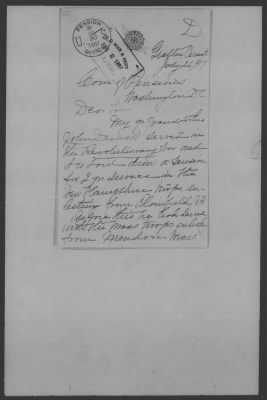 D
PENSION
OFFICE
Grafton Vermont
July 26, 97
Com of Pensions
Washington D.C.
Dear Sir
My grandfather
John Daniels served in
the Revolutionary War and
drew a Pension
for 2 yr service in the
New Hampshire troops en-
listing from Plainfield N.H.
Before this he had served
with the Mass troops enlisting
from Mendon Mass